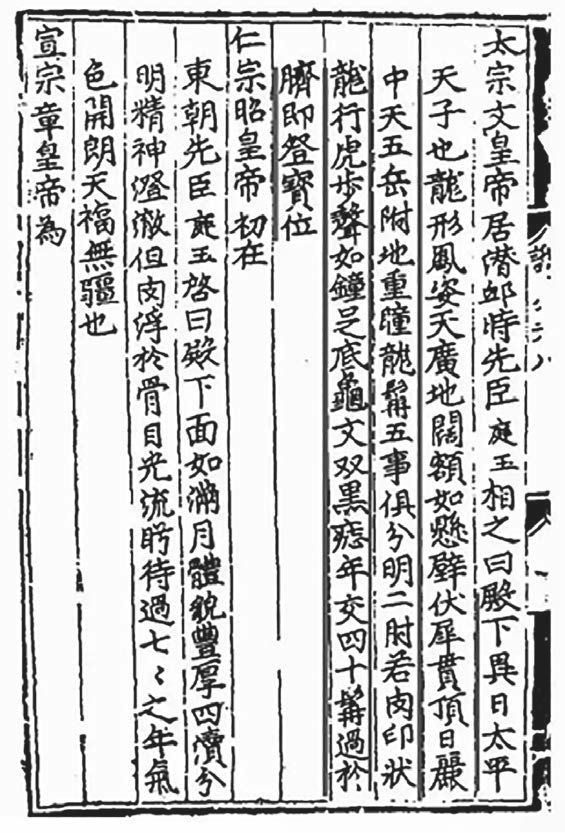 太宗文皇帝居潛邸時先臣廷玉相之曰殿下異日太平
天子也龍形鳳姿天廣地闊額如懸壁伏犀貫頂日麗
中天五岳附地重瞳龍髯五事俱分明二肘若肉印狀
龍行虎步聲如鐘足底龜文双黑痣年交四十髯過於
臍即登寶位
仁宗昭皇帝初在
東朝先臣廷玉啓曰殿下面如滿月體貌豐厚四瀆分
明精神澄澈但肉浮於骨目光流眄待過七〻之年氣
色開朗天福無疆也
宣宗章皇帝為